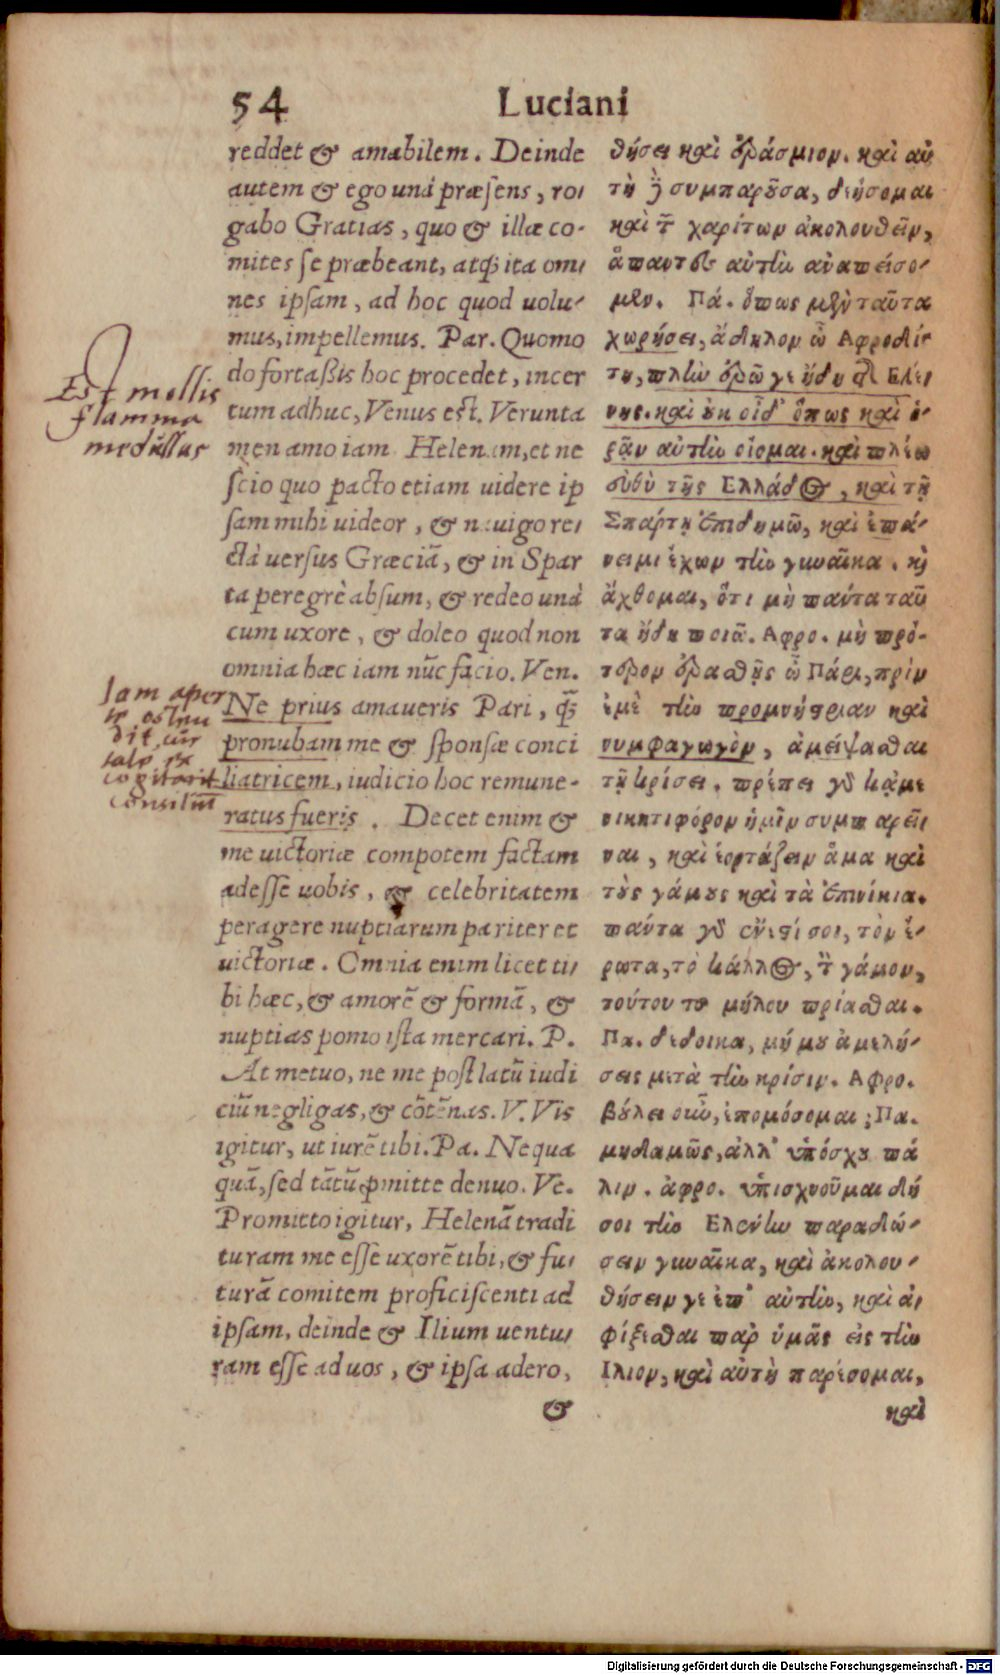 54 Luciani
reddet & amabilem. Deinde
autem & ego unà præsens, ro-
gabo Gratias, quo & illæ co-
mites se præbeant, atq; ita om-
nes ipsam, ad hoc quod uolu-
mus, impellemus. Par. Quomo
do fortaßis hoc procedet, incer
tum adhuc, Venus est. Verunta
men amo iam Helenam, et ne
scio quo pacto etiam uidere ip
sam mihi uideor, & nauigo re-
ctà uersus Græciã, & in Spar
ta peregrè absum, & redeo unà
cum uxore, & doleo quod non
omnia hæc iam nũc facio. Ven.
Ne prius amaueris Pari, q̃
pronubam me & sponsæ conci
liatricem, iudicio hoc remune-
ratus fueris. Decet enim &
me uictoriæ compotem factam
adesse uobis, & celebritatem
peragere nuptiarum pariter et
uictoriæ. Omnia enim licet ti-
bi hæc, & amorẽ & formã, &
nuptias pomo ista mercari. P.
At metuo, ne me post latũ iudi
ciũ negligas, & cõtẽnas. V. Vis
igitur, ut iurẽ tibi. Pa. Nequa
quã, sed tãtũ ꝓmitte denuo. Ve.
Promitto igitur, Helenã tradi
turam me esse uxorẽ tibi, & fu-
turã comitem proficiscenti ad
ipsam, deinde & Ilium uentu-
ram esse ad uos, & ipsa adero,
&
θήσει καὶ ἐράσμιον. καὶ αὐ
τὴ δὲ συμπαροῦσα, δεήσομαι
καὶ τῶν χαρίτων ἀκολουθεῖν,
ἅπαντες αὐτὴν ἀναπείσο-
μεν. Πά. ὅπως μὲν ταῦτα
χωρήσει, ἄδηλον ὦ Ἀφροδί-
τη, πλὴν ἐρῶ γε ἤδη τῆς Ἑλέ-
νης. καὶ οὐκ οἶδ' ὅπως καὶ ὁ-
ρᾷν αὐτὴν οἴομαι. καὶ πλέω
εὐθὺ τῆς Ἑλλάδος, καὶ τῇ
Σπάρτῃ ἐπιδημῶ, καὶ ἐπά-
νειμι ἔχων τὴν γυναῖκα. καὶ
ἄχθομαι, ὅτι μὴ πάντα ταῦ
τα ἤδη ποιῶ. Ἀφρο. μὴ πρό-
τερον ἐρασθῇς ὦ Πάρι, πρὶν
ἐμὲ τὴν προμνήστριαν καὶ
νυμφαγωγὸν, ἀμείψασθαι
τῇ κρίσει. πρέπει γὰρ κᾀμὲ
νικητιφόρον ἡμῖν συμπαρεῖ-
ναι, καὶ ἑορτάζειν ἅμα καὶ
τοὺς γάμους καὶ τὰ ἐπινίκια.
πάντα γὰρ ἔνεστί σοι, τὸν ἔ-
ρωτα, τὸ κάλλος, τὸν γάμον,
τούτου τοῦ μήλου πρίασθαι.
Πα. δέδοικα, μή μου ἀμελή-
σεις μετὰ τὴν κρίσιν. Ἀφρο.
βούλει οὖν, ἐπομόσομαι; Πα.
μηδαμῶς, ἀλλ' ὑπόσχου πά
λιν. ἀφρο. ὑπισχνοῦμαι δή
σοι τὴν Ἑλένην παραδώ-
σειν γυναῖκα, καὶ ἀκολου-
θήσειν γε ἐπ' αὐτὴν, καὶ ἀ-
φίξεσθαι παρ ὑμᾶς εἰς τὴν
Ἴλιον, καὶ αὐτὴ παρέσομαι,
καὶ
Est mollis
flamma
medullas
Jam aper
te ostẽ
dit, cur
talẽ
cogitarit
consiliũ
Digitalisierung gefördert durch die Deutsche Forschungsgemeinschaft - DFG